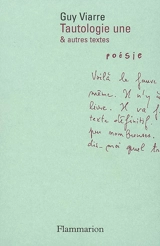 Guy Viarre
Tautologie une
& autres textes
poésie
Voilà le
même. Il n'y
livre. Il va f
texte définitif
que nombreuse,
dis-moi quel t
FLAMMARION